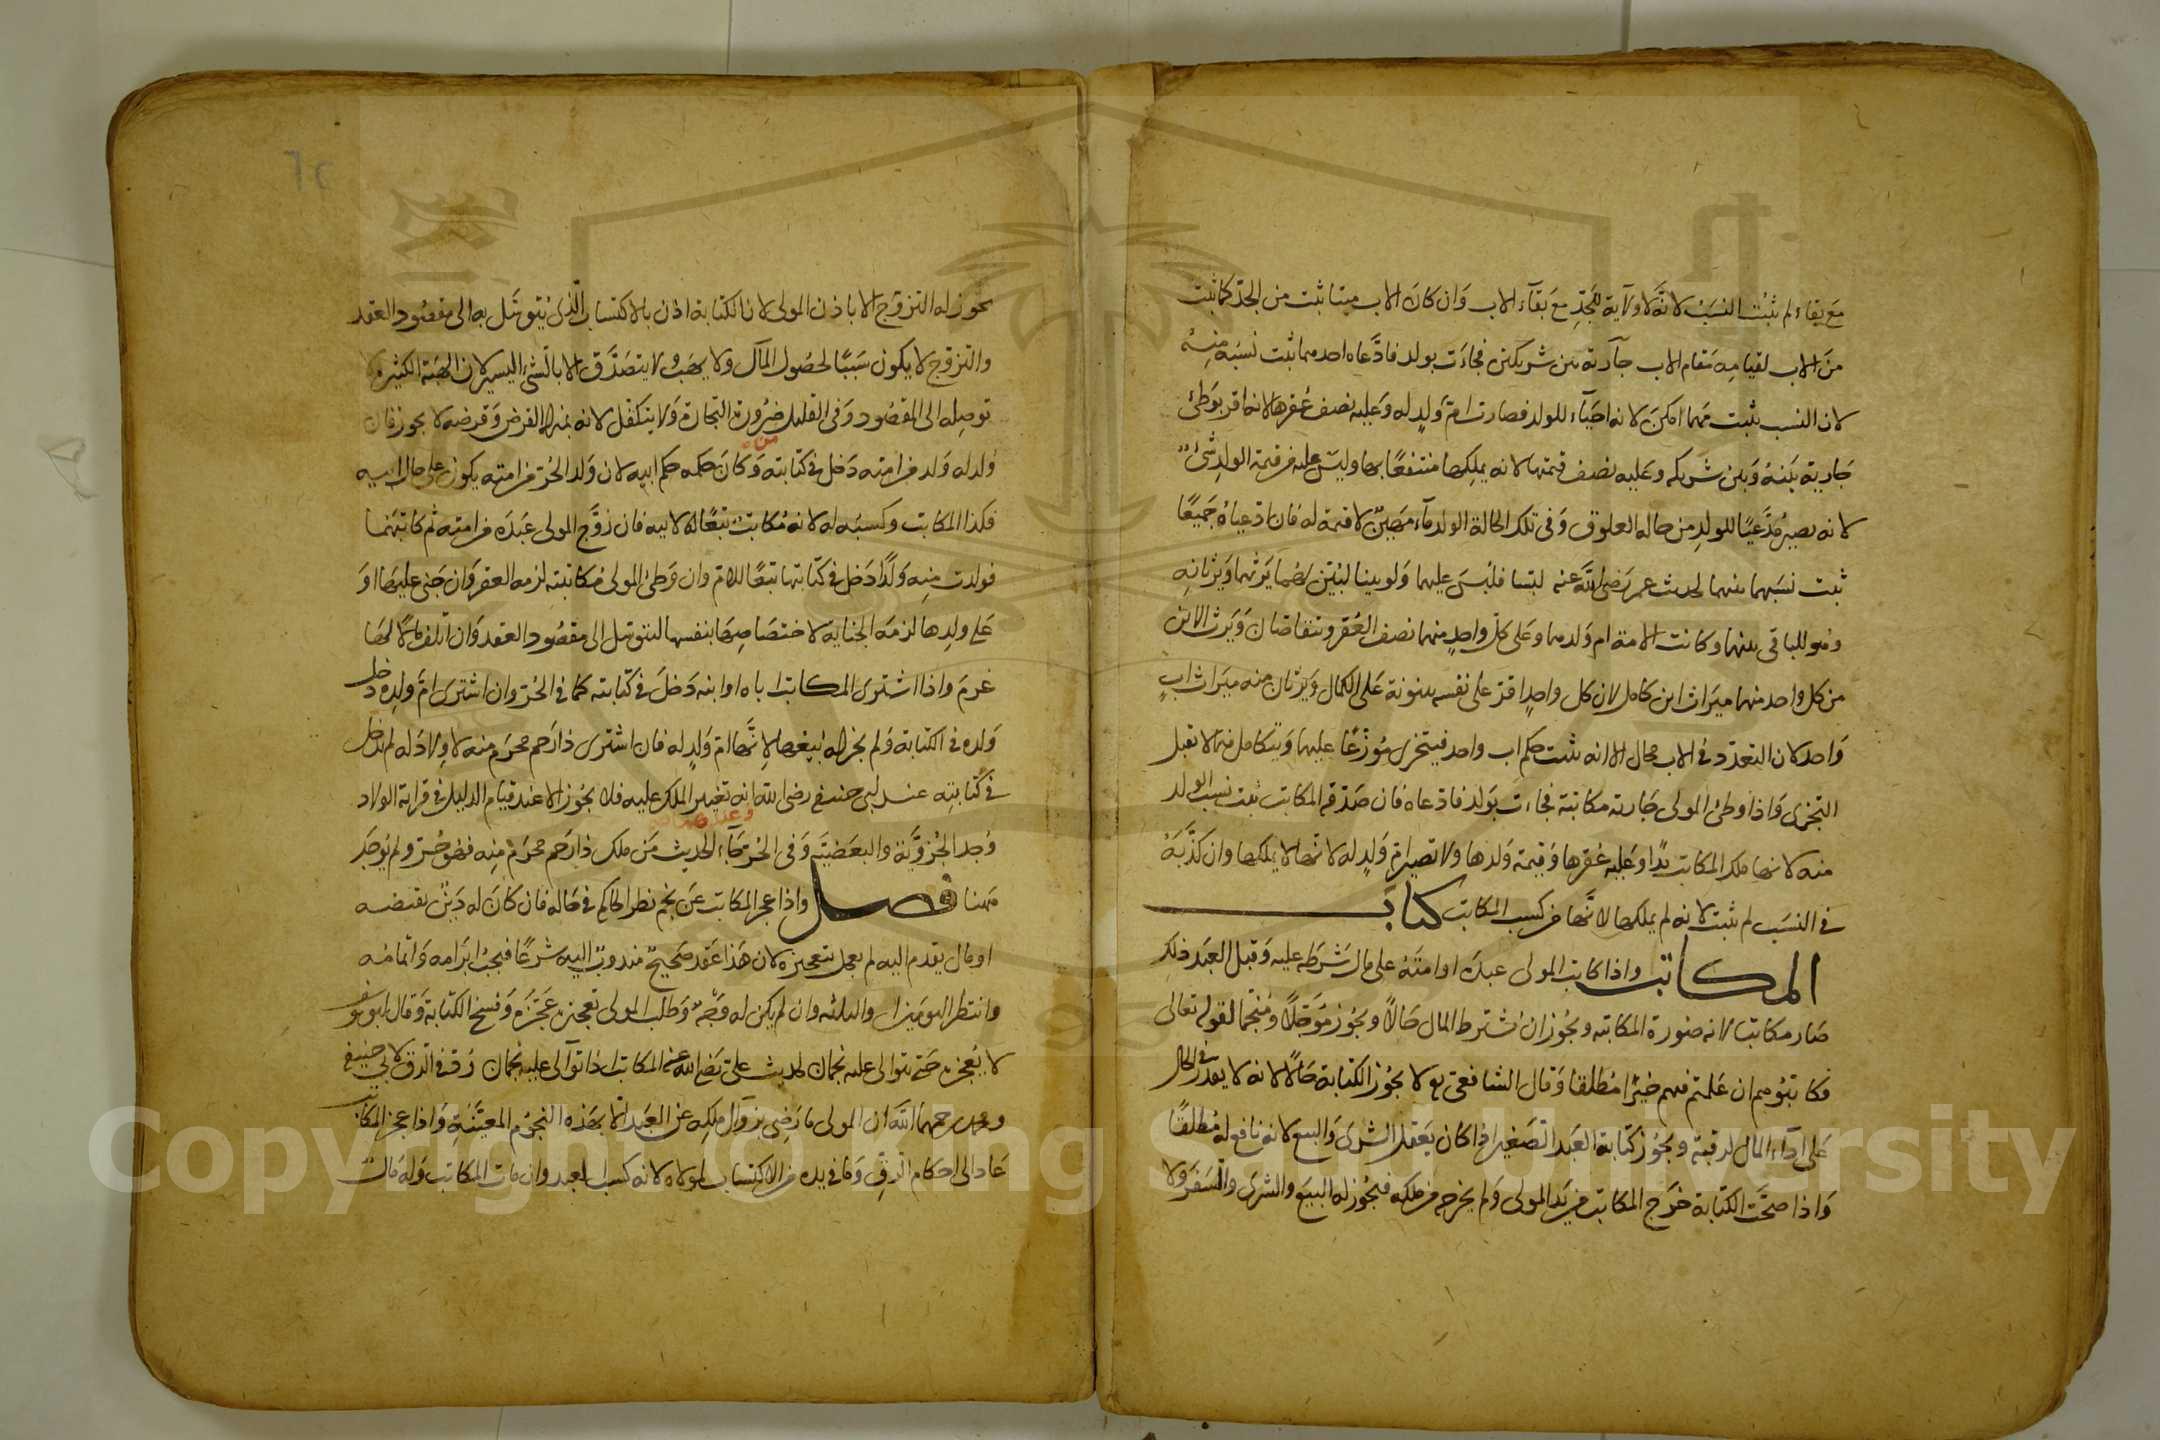 مع بقاء لم يثبت النسب لانه لا ولاية للجد مع بقاء الاب وان كان الاب ميتا ثبت من الجد كما ثبت
من الاب لقيامه مقام الاب جارية بين شريكين فجاءت بولد فادعاه احدهما ثبت نسبه منه
لان النسب يثبت مهما امكن لانه احياء للولد فصارت ام ولد له وعليه نصف عقرها لانه اقر بوطئ
جارية بينه وبين شريكه وعليه نصف قيمتها لانه يملكها منتفعا بها وليس عليه من قيمة الولد شئ
لانه يصير مدعيا للولد من حالة العلوق وفى تلك الحالة الولد ماء مهين لا قيمة له فان ادعياه جميعا
ثبت نسبهما منهما لحديث عمر رضى الله عنه لبسا فلبس عليهما ولو بينا لبين لهما يرثهما ويرثانه
وهو للباقى منهما وكانت الامة ام ولدهما وعلى كل واحد منهما نصف العقر ويتقاصان ويرث الابن
من كل واحد منهما ميراث ابن كامل لان كل واحد اقر على نفسه ببنوته على الكمال ويرثان منه ميراث اب
واحد لان التعدد فى الاب محال الا انه يثبت حكم اب واحد فيتجزى موزعا عليهما ويتكامل فيما لا يقبل
التجزى واذا وطئ المولى جارية مكاتبة فجاءت بولد فادعاه فان صدقه المكاتب ثبت نسب الولد
منه لانها ملك المكاتب يدا وعليه عقرها وقيمة ولدها ولا تصير ام ولد له لانها لا يملكها وان كذبه
فى النسب لم يثبت لانه لم يملكها لانها من كسب المكاتب كتاب
المكاتب واذا كاتب المولى عبده او امته على مال شرطه عليه وقبل العبد ذلك
صار مكاتبا لانه صورة المكاتبه ويجوز ان اشترط المال حالا ويجوز مؤجلا ومنجما لقوله تعالى
فكاتبوهم ان علمتم فيهم خيرا مطلقا وقال الشافعى لا يجوز الكتابة حالا لانه لا يقدر فى الحال
على اداء المال لرقبته ويجوز كتابة العبد الصغير اذا كان يعقل الشرى والبيع لانه نافع له مطلقا
واذا صحت الكتابة خرج المكاتب من يد المولى ولم يخرج من ملكه فيجوز له البيع والشرى والسفر ولا
٦٢
يجوز له التزوج الا باذن المولى لان الكتابة اذن بالاكتساب الذى يتوسل به الى مقصود العقد
والتزوج لا يكون سببا لحصول المال ولا يهب ولا يتصدق الا بالشئ اليسير لان الهبة الكثيرة لا
توصله الى المقصود وفى القليل ضرورة التجارة ولا يتكفل لانه بمنزلة القرض وقرضه لا يجوز فان
ولد له ولد من امته دخل فى كتابته وكان حكمه حكم ابيه لان ولد الحر من امته يكون على حال ابيه
فكذا المكاتب وكسبه له لانه مكاتب تبعا له لابيه فان زوج المولى عبده من امته ثم كاتبهما
فولدت منه ولدا دخل فى كتابتها تبعا للام وان وطئ المولى مكاتبته لزمه العقر وان جنى عليها او
على ولدها لزمه الجناية لاختصاصها بنفسها لتتوسل الى مقصود العقد وان اتلف مالا لها
غرم واذا اشترى المكاتب اباه او ابنه دخل فى كتابته كما فى الحر وان اشترى ام ولده دخل
ولده فى الكتابة ولم يجز له بيعها لانها ام ولد له فان اشترى ذا رحم محرم منه لا ولاد له لم يدخل
فى كتابته عند ابى حنيفة رضى الله انه تغيير الملك عليه فلا يجوز الا عند قيام الدليل فى قرابة الولاد
وجد الجزوية والبعضية وفى الحر جاء الحديث من ملك ذا رحم محرم منه فهو حر ولم يوجد
ههنا فصل واذا عجز المكاتب عن نجم نظر الحاكم فى حاله فان كان له دين يقتضيه
او مال يقدم اليه لم يعجل بتعجيزه لان هذا عقد صحيح مندوب اليه شرعا فيجب ابرامه واتمامه
وانتظر اليومين والثلثه وان لم يكن له وجه وطلب المولى تعجيزه عجزه وفسخ الكتابة وقال ابو يوسف
لا يعجزه حتى يتوالى عليه نجمان لحديث على رضى الله عنه المكاتب اذا توالى عليه نجمان رد فى الرق لابى حنيفة
ومحمد رحمهما الله ان المولى ما رضى بزوال ملكه عن العبد الا بهذه النجوم المعينة واذا عجز المكاتب
عاد الى احكام الرق وما فى يده من الاكتساب لمولاه لانه كسب العبد وان مات المكاتب وله مال
Copyright © King Saud University